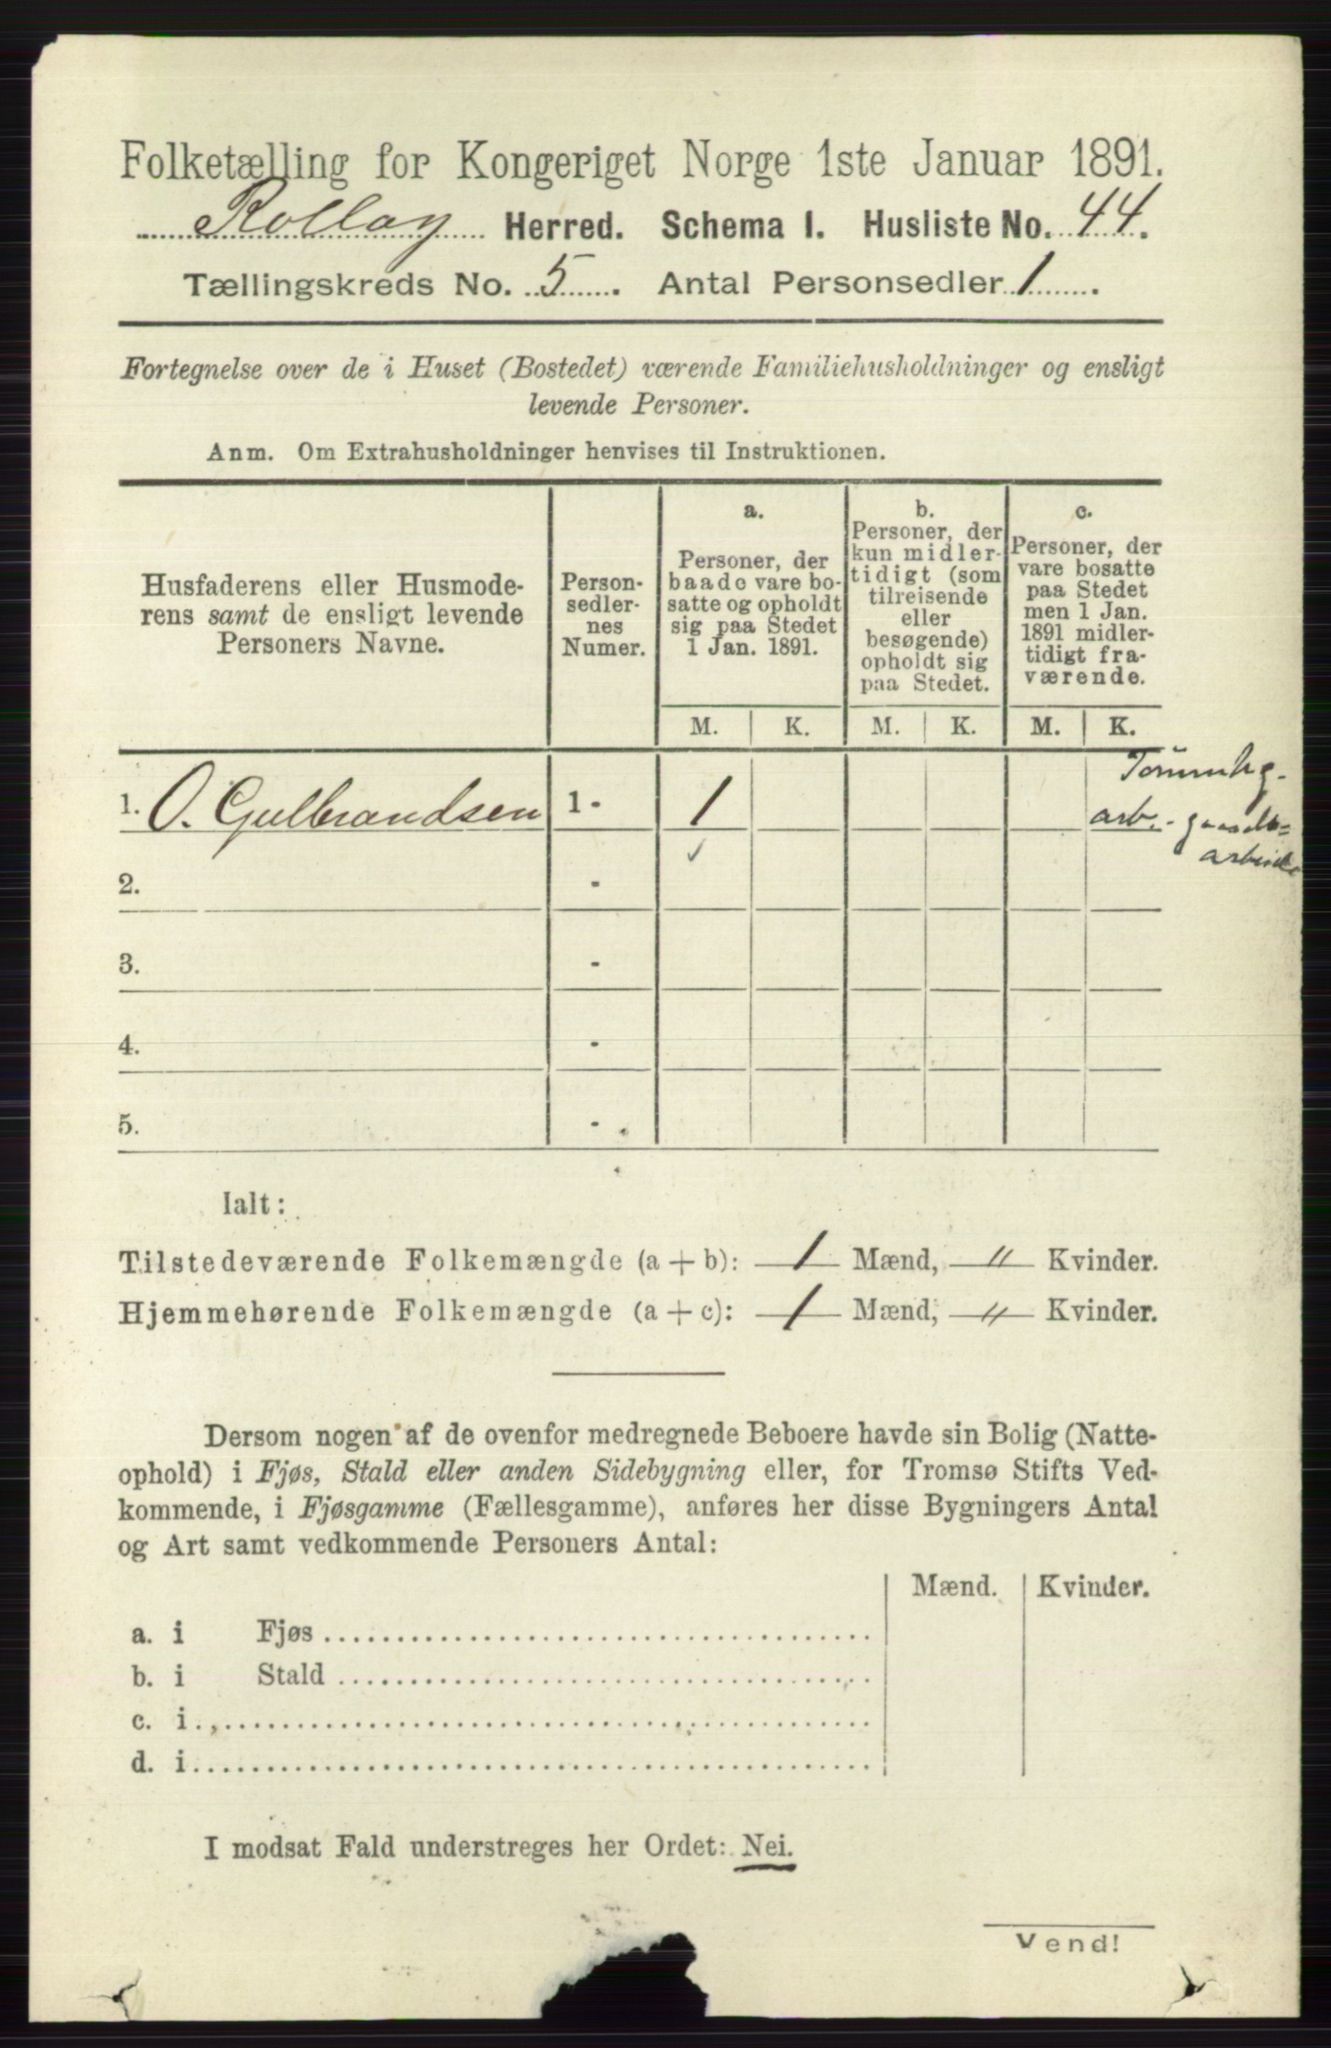 Folketælling for Kongeriget Norge 1ste Januar 1891.
Rollag Herred. Schema I. Husliste No. 44.
Tællingskreds No. 5. Antal Personsedler 1.
Fortegnelse over de i Huset (Bostedet) værende Familiehusholdninger og ensligt
levende Personer.
Anm. Om Extrahusholdninger henvises til Instruktionen.
Husfaderens eller Husmode-
rens samt de ensligt levende
Personers Navne.
Person-
sedler-
nes
Numer.
a.
Personer, der
baade vare bo-
satte og opholdt
sig paa Stedet
1 Jan. 1891.
b.
Personer, der
kun midler-
tidigt (som
tilreisende
eller
besøgende)
opholdt sig
paa Stedet.
c.
Personer, der
vare bosatte
paa Stedet
men 1 Jan.
1891 midler-
tidigt fra-
værende.
M. K. M. K. M. K.
1. O. Gulbrandsen 1 - 1
arb.
✓
2. -
3. -
4. -
5. -
Ialt:
Tilstedeværende Folkemængde (a + b): 1 Mænd, " Kvinder.
Hjemmehørende Folkemængde (a + c): 1 Mænd, " Kvinder.
Dersom nogen af de ovenfor medregnede Beboere havde sin Bolig (Natte-
ophold) i Fjøs, Stald eller anden Sidebygning eller, for Tromsø Stifts Ved-
kommende, i Fjøsgamme (Fællesgamme), anføres her disse Bygningers Antal
og Art samt vedkommende Personers Antal:
Mænd. Kvinder.
a. i Fjøs
b. i Stald
c. i
d. i
I modsat Fald understreges her Ordet: Nei.
Vend!